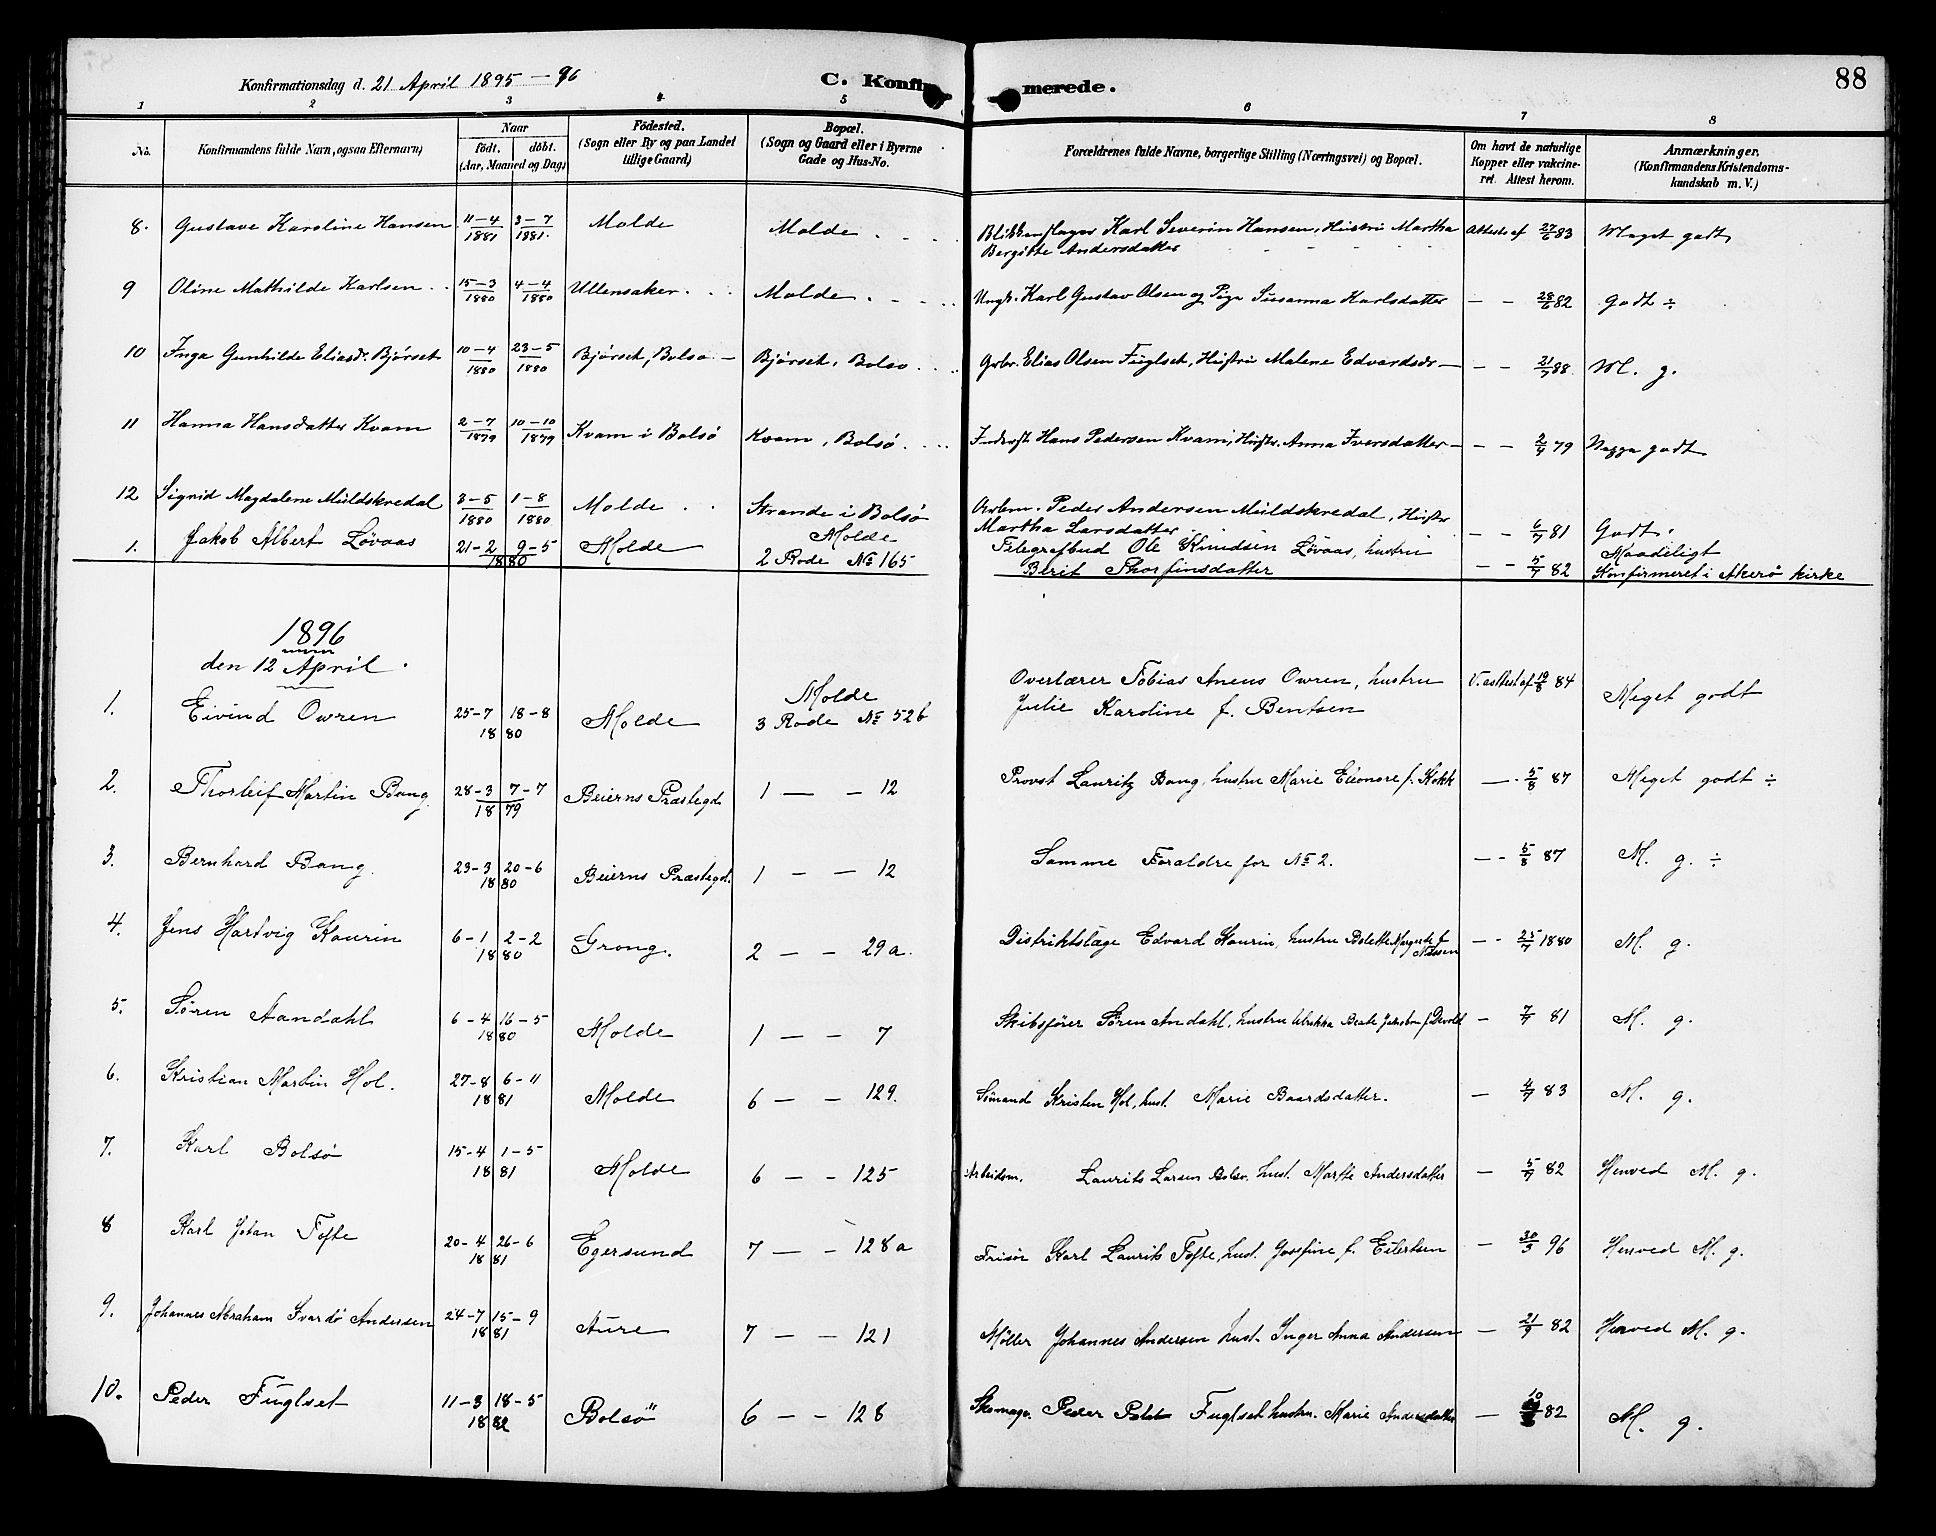 88
Konfirmationsdag d. 21 April 1895 – 96 C. Konfirmerede.
1 2 3 4 5 6 7 8
No. Konfirmandens fulde Navn, ogsaa Efternavn) Naar født. døbt. (Aar, Maaned og Dag) Fødested. (Sogn eller By og paa Landet tillige Gaard) Bopæl. (Sogn og Gaard eller i Byerne Gade og Hus-No. Forældrenes fulde Navne, borgerlige Stilling (Næringsvei) og Bopæl. Om havt de naturlige Kopper eller vakcineret. Attest herom. Anmærkninger. (Konfirmandens Kristendomskundskab m. V.)
8. Gustave Karoline Hansen 11–4 1881 3–7 1881. Molde Molde Blikkenslager Karl Severin Hansen, Hustru Martha Attest af 27/6 83 Meget godt
Bergitte Andersdatter
9 Oline Mathilde Karlsen 15–3 1880 4–4 1880 Ullensaker Molde Ungk. Karl Gustav Olsen og Pige Susanna Karlsdatter – – 28/6 82 Godt ÷
10 Inga Gunhilde Eliasd. Bjørset 10–4 1880 23–5 1880 Bjørset, Bolsø – Bjørset, Bolsø Grbr. Elias Olsen Fuglset, Hustru Malene Edvardsdr – – – 21/7 88 M. g.
11 Hanna Hansdatter Kvam 2–7 1879 10–10 1879 Kvam i Bolsø Kvam, Bolsø Inderst Hans Pedersen Kvam, Hustr. Anna Iversdatter – – – 2/9 79 Nogga godt
12 Sigrid Magdalene Muldskredal 3–5 1880 1–8 1880 Molde Strande i Bolsø Arbm. Peder Andersen Muldskredal, Hustr
Martha Larsdatter – – 6/7 81 Godt.
1. Jakob Albert Løvaas 21–2 9–5 1880 Molde Molde 2 Rode No 165 Telegrafbud Ole Knudsen Løvaas, hustru
Berit Thorfinsdatter – – 5/7 82 Maadeligt Konfirmeret i Akerø kirke
1896
den 12 April.
1. Eivind Owren 25–7 18–8 1880 Molde Molde 3 Rode No 52 b Overlærer Tobias Aneus Owren, hustru V. attest af 19/8 84 Meget godt
Julie Karoline f. Bentsen
2. Thorleif Martin Bang. 28–3 7–7 1879 Beierns Præstegd 1 – – 12 Provst Lauritz Bang, hustru Marie Eleonore f. Kokk – 5/8 87 Meget godt ÷
3. Bernhard Bang. 23–3 20–6 1880 Beierns Præstegd. 1 – – 12 Samme Forældre for No 2. – – 5/8 87 M. g. ÷
4. Jens Hartvig Kaurin 6–1 2–2 1880 Grong. 2 – – 29 a. Distriktslæge Edvard Kaurin, hustru Bolette Margrete f. Nissen – – 25/7 1880 M. g.
5. Søren Aandahl 6–4 16–5 1880 Molde 1 – – 7 Skibsfører Søren Andahl, hustru Ulrikka Beate Jakobm f. Devold – 7/7 81 M. g.
6. Kristian Martin Hol. 27–8 6–11 1881 Molde 6 – – 129. Sømand Kristen Hol, hust. Marie Baardsdatter. – 4/7 83 M. g.
7. Karl Bolsø 15–4 1–5 1881 Molde 6 – – 125 Arbeidsm. Laurits Larsen Bolsø. hust. Marthe Andersdatter – 5/7 82 Henved M. g.
8 Karl Johan Tofte 20–4 26–6 1881 Egersund 7 – – 128 a Frisør Karl Laurits Tofte, hust. Josefine f. Eilertsen – 30/3 96 Henved M. g.
9. Johannes Abraham Svardø Andersen 24–7 15–9 1881 Aure 7 – – 121 Møller Johannes Andersen hust. Inger Anna Andersen – 21/9 82 Henved M. g.
10. Peder Fuglset 11–3 18–5 1882 Bolsö 6 – – 128 Skomager. Peder Fuglset hustru. Marie Andersdatter – 10 82 M. g.